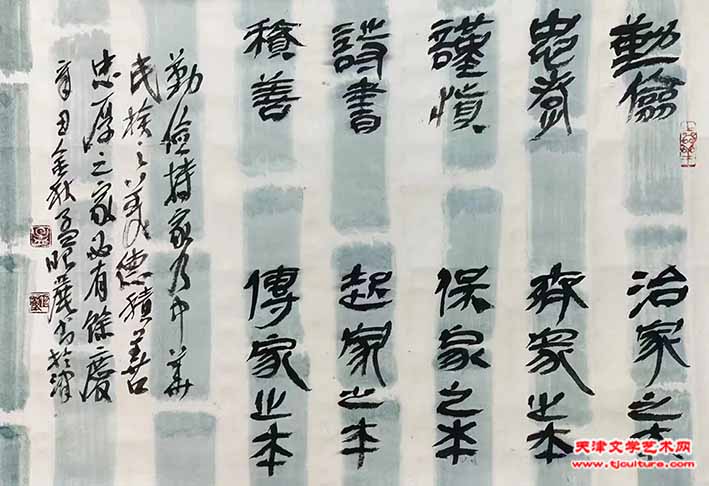 勤儉治家之本
忠孝齊家之本
謹慎保家之本
詩書起家之本
積善傳家之本
勤儉持家乃中華
民族之美德積善
忠厚之家必有餘慶
辛丑金秋孟昭書於津
天津文学艺术网
www.tjculture.com